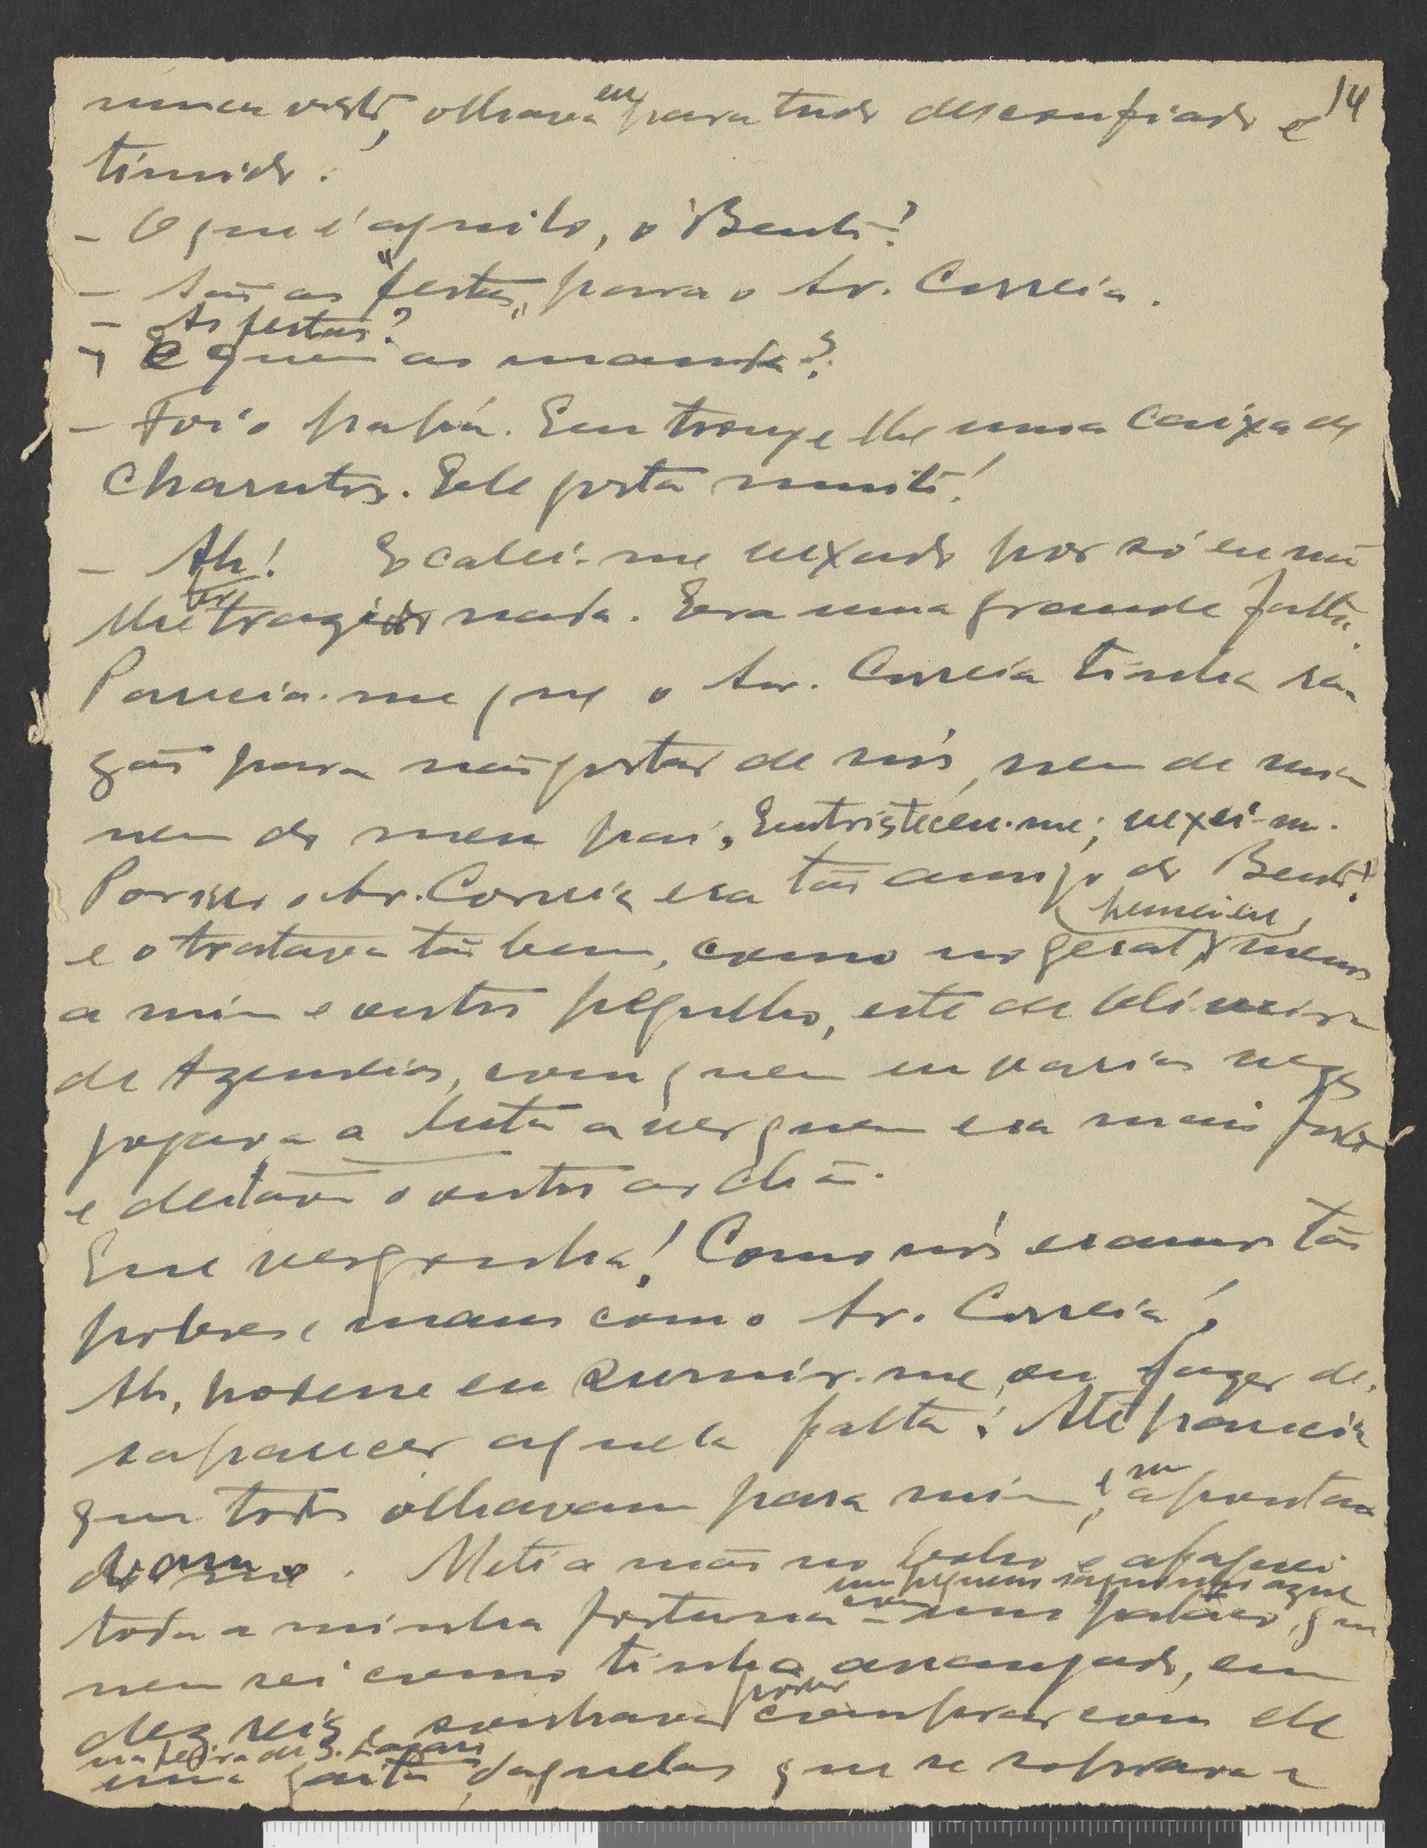 14
nunca visto, olhava eu para tudo desconfiado e
timido.
- O que é aquilo, ó Bento?
- São as "festas" para o Sr. Correia.
- As festas?
- E quem as manda?
- Foi o papá. Eu trouxe-lhe uma caixa de
charutos. Ele gosta muito!
- Ah! E calei-me vexado por só eu não
lhe trazer nada. Era uma grande falta.
Parecia-me que o Sr. Correia tinha ra-
zão para não gostar de nós, nem de mim
nem do meu pai. Entristeceu-me; vexei-me.
Por isso o Sr. Correia era tão amigo do Bento!
e o tratava tão bem, como no geral, menos
a mim e outro, este de Oliveira
de Azemeis, com quem em varias vezes
jogava a luta a ver quem era mais forte
e deitava o outro ao chão.
Que vergonha! Como nós eramos tão
pobres e maus com o Sr. Correia!
Ah, podesse eu sumir-me, ou fazer de-
saparecer aquela falta! Até parecia
que todos olhavam para mim e, a apontar
. Meti a mão no bolso e apalpei
um pequeno azul
toda a minha fortuna com um pataco, que
nem sei como tinha arranjado, em
dez reis, e sonhava poder comprar com ele
na feira de S. Lazaro
uma gaita, daquelas que se sopravam e